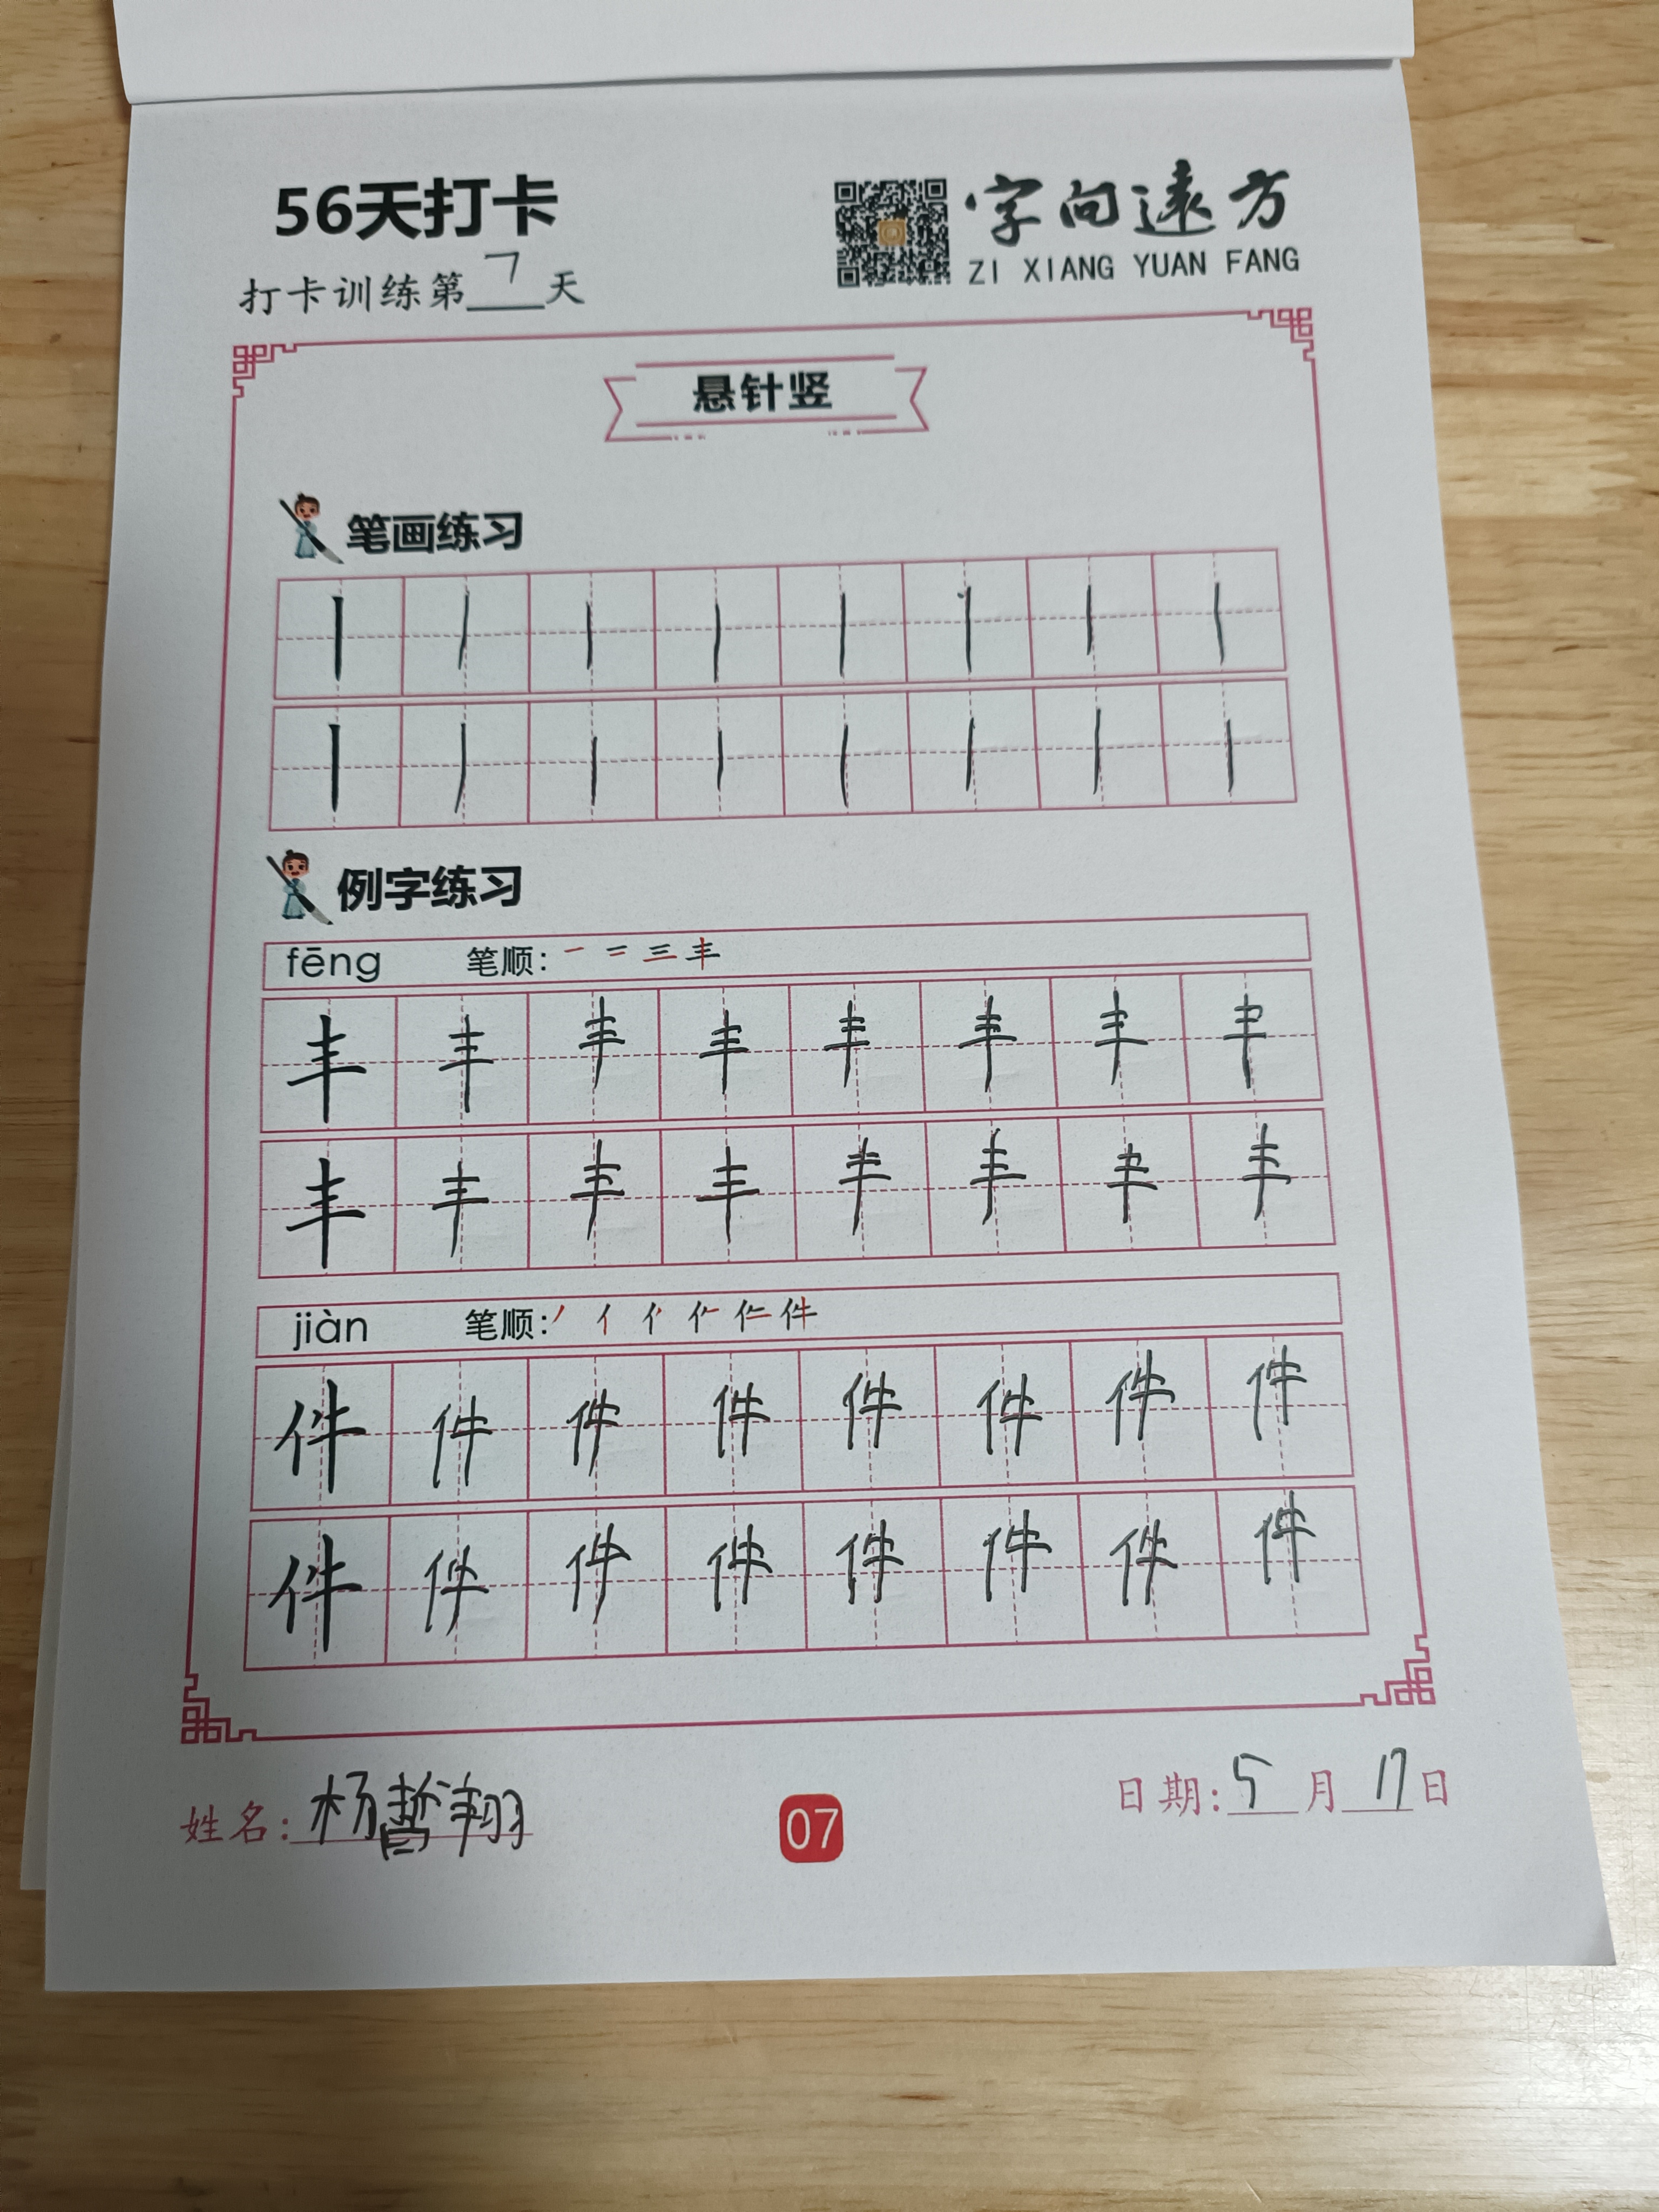 56天打卡
字向遠方
ZI XIANG YUAN FANG
打卡训练第7天
悬针竖
笔画练习
丨 丨 丨 丨 丨 丨 丨 丨
丨 丨 丨 丨 丨 丨 丨 丨
例字练习
fēng 笔顺: 一 二 三 丰
丰 丰 丰 丰 丰 丰 丰 丰
丰 丰 丰 丰 丰 丰 丰 丰
jiàn 笔顺: 丿 亻 件
件 件 件 件 件 件 件 件
件 件 件 件 件 件 件 件
姓名: 杨哲翔
07
日期: 5月17日